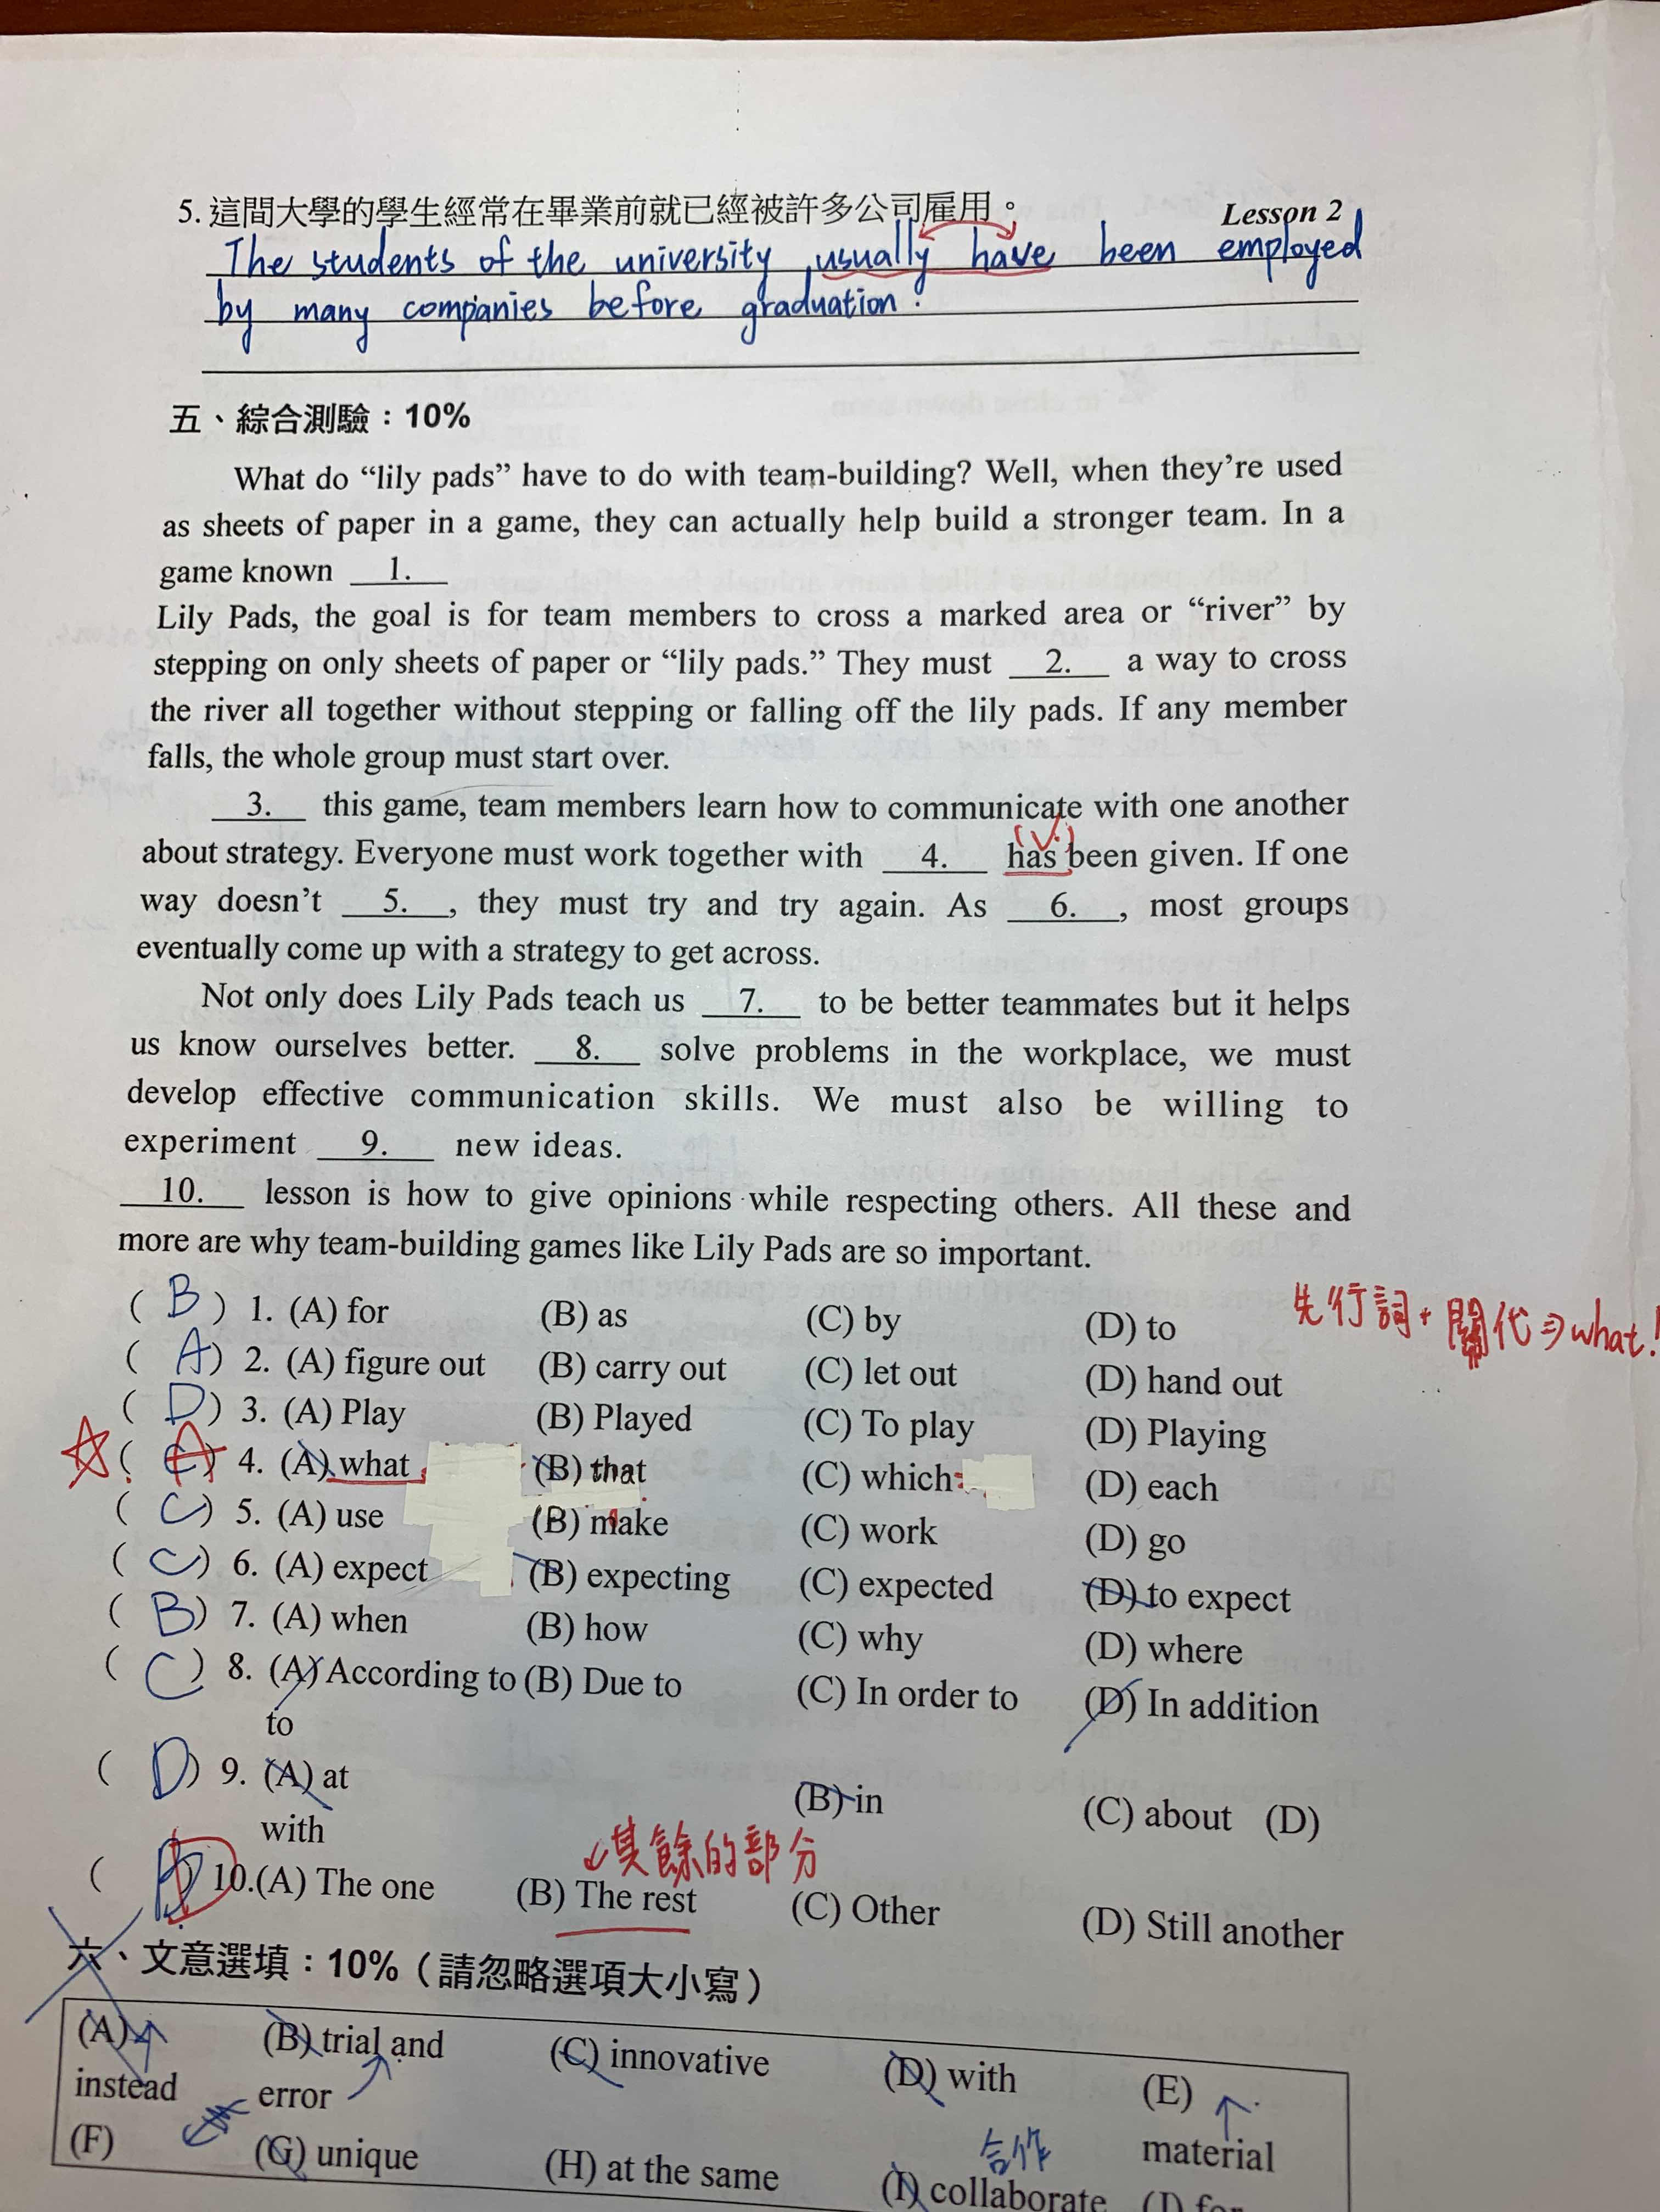 5. 這間大學的學生經常在畢業前就已經被許多公司雇用。
Lesson 2
The students of the university usually have been employed
by many companies before graduation.
五、綜合測驗：10%
What do “lily pads” have to do with team-building? Well, when they’re used
as sheets of paper in a game, they can actually help build a stronger team. In a
game known 1.
Lily Pads, the goal is for team members to cross a marked area or “river” by
stepping on only sheets of paper or “lily pads.” They must 2. a way to cross
the river all together without stepping or falling off the lily pads. If any member
falls, the whole group must start over.
3. this game, team members learn how to communicate with one another
(V.)
about strategy. Everyone must work together with 4. has been given. If one
way doesn’t 5., they must try and try again. As 6., most groups
eventually come up with a strategy to get across.
Not only does Lily Pads teach us 7. to be better teammates but it helps
us know ourselves better. 8. solve problems in the workplace, we must
develop effective communication skills. We must also be willing to
experiment 9. new ideas.
10. lesson is how to give opinions while respecting others. All these and
more are why team-building games like Lily Pads are so important.
先行詞+關代⇒what!
( B ) 1. (A) for (B) as (C) by (D) to
( A ) 2. (A) figure out (B) carry out (C) let out (D) hand out
( D ) 3. (A) Play (B) Played (C) To play (D) Playing
☆( A ) 4. (A) what (B) that (C) which (D) each
( C ) 5. (A) use (B) make (C) work (D) go
( C ) 6. (A) expect (B) expecting (C) expected (D) to expect
( B ) 7. (A) when (B) how (C) why (D) where
( C ) 8. (A) According to (B) Due to (C) In order to (D) In addition
to
( D ) 9. (A) at (B) in (C) about (D)
with
其餘的部分
( D ) 10.(A) The one (B) The rest (C) Other (D) Still another
六、文意選填：10%（請忽略選項大小寫）
(A) (B) trial and (C) innovative (D) with (E)
instead error material
合作
(F) (G) unique (H) at the same (I) collaborate (J) for